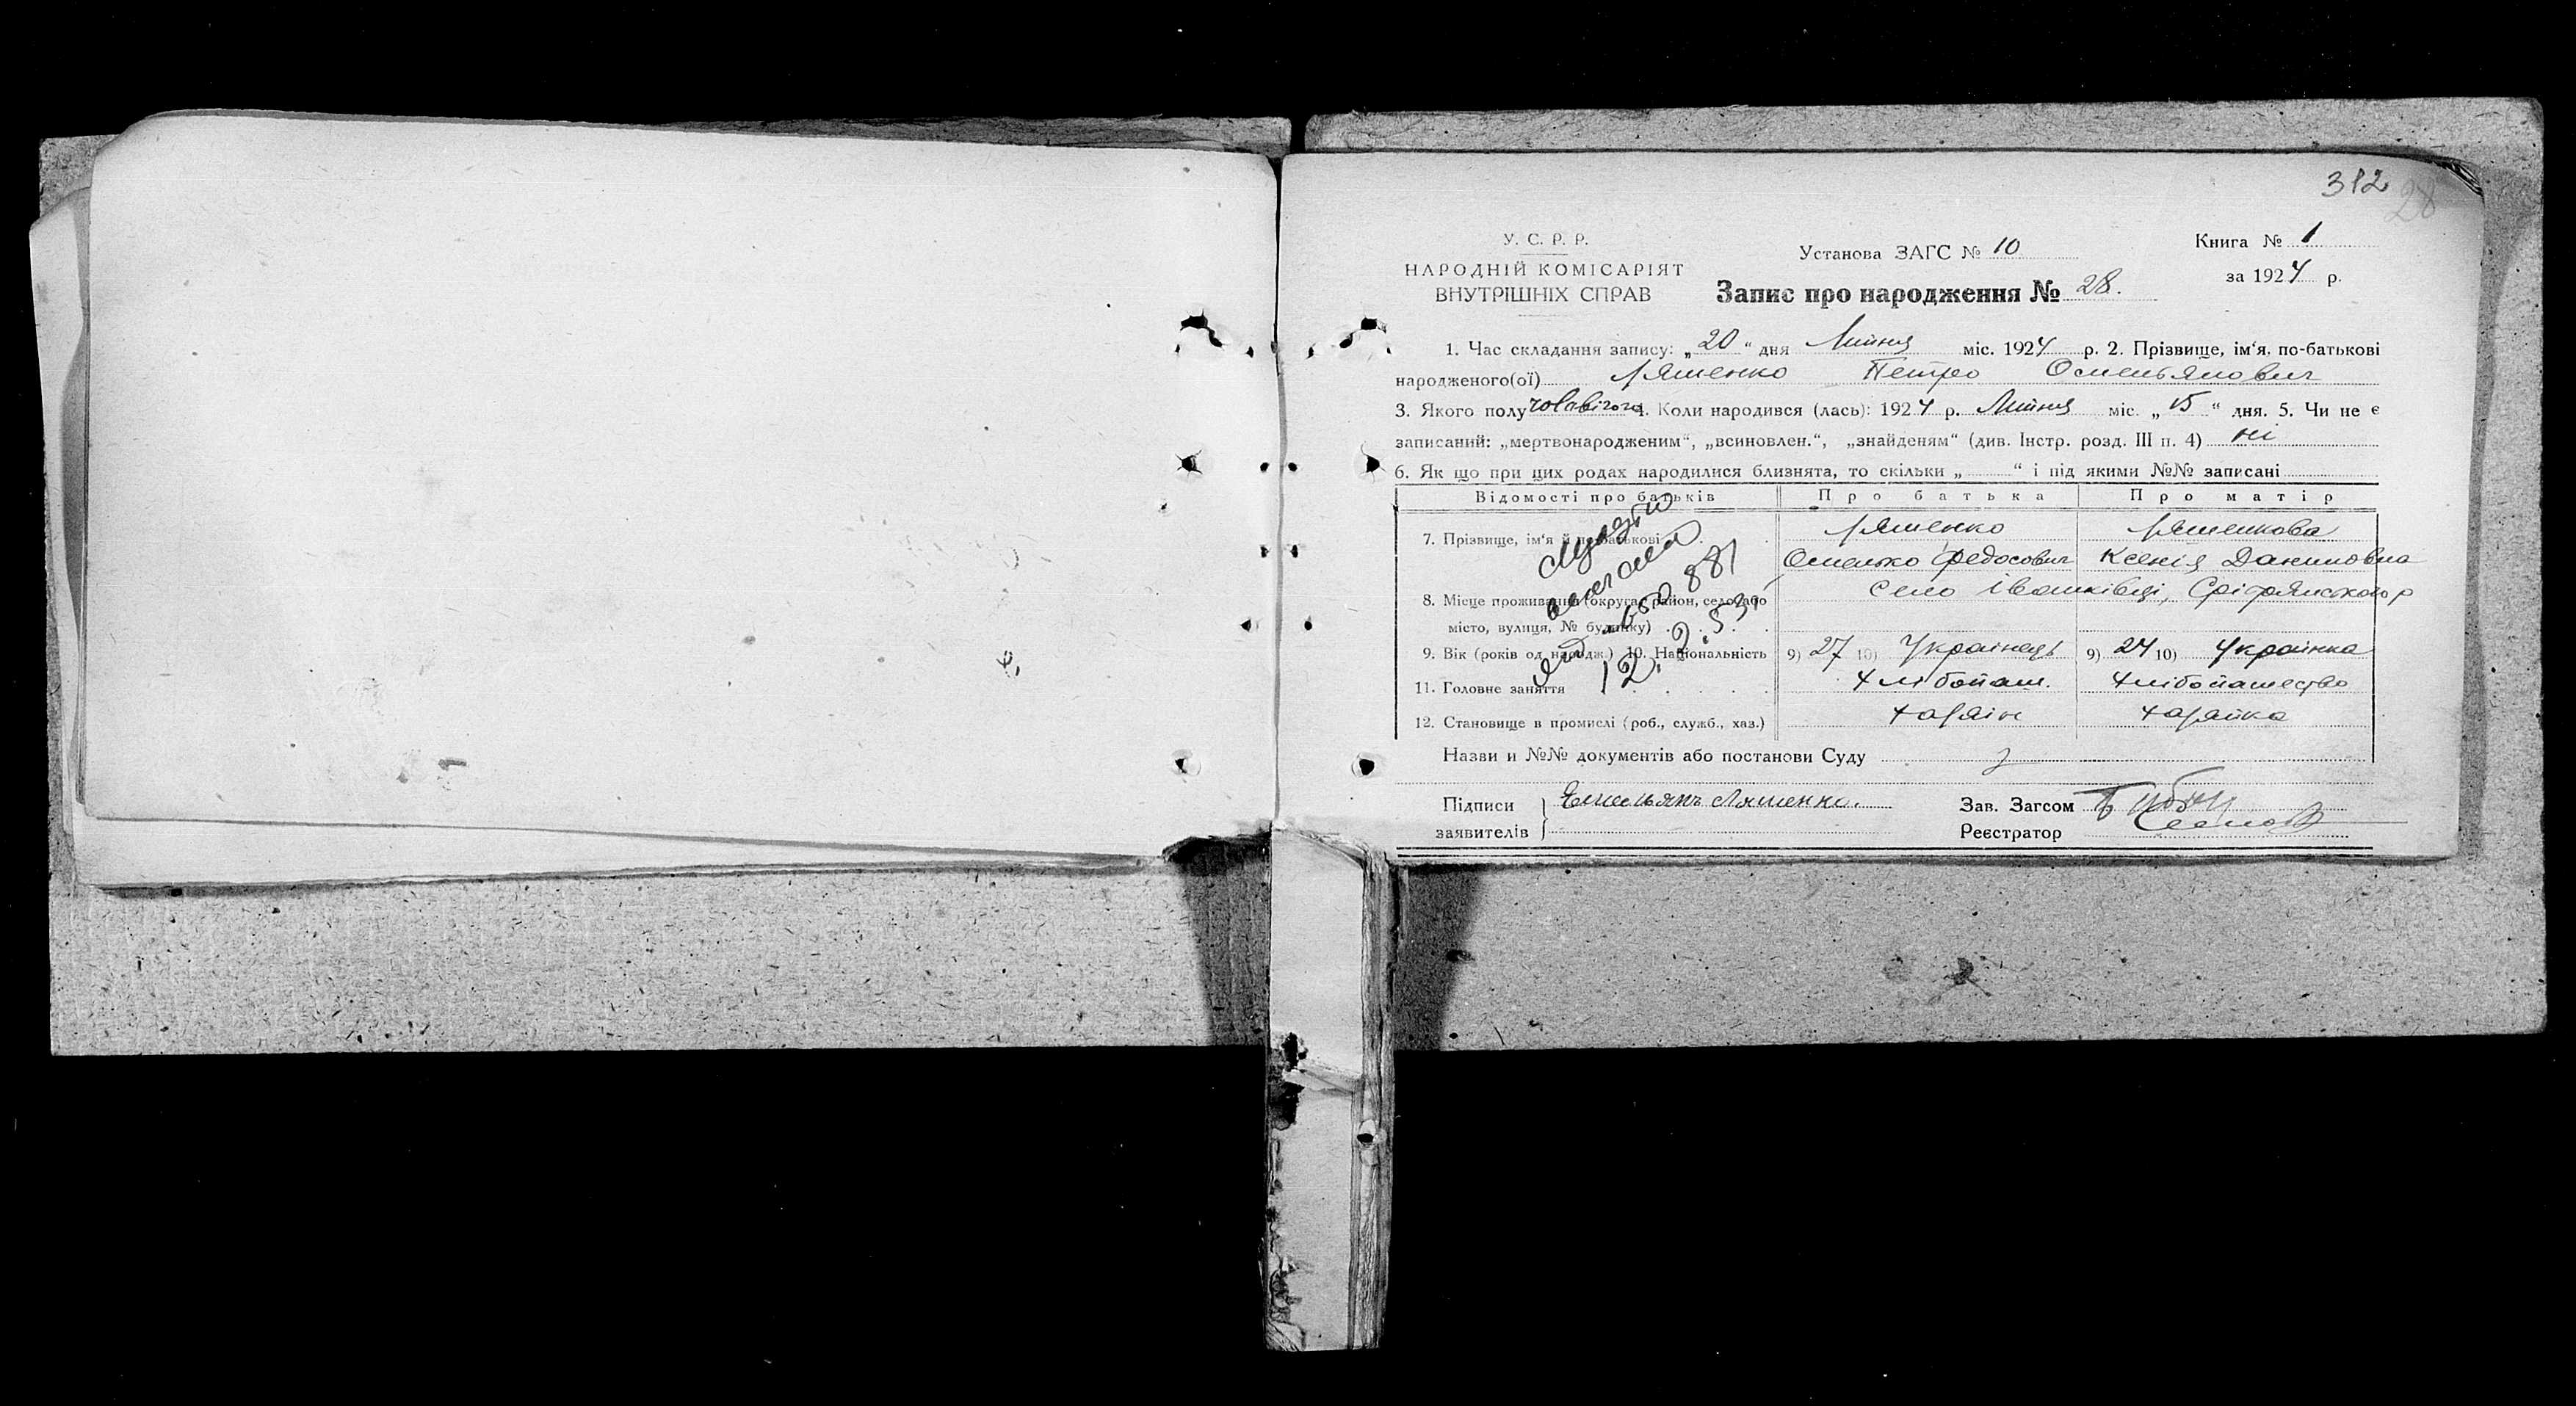 312
28
У. С. Р. Р.
НАРОДНІЙ КОМІСАРІЯТ
ВНУТРІШНІХ СПРАВ
Установа ЗАГС № 10
Запис про народження № 28.
Книга № 1
за 1924 р.
1. Час складання запису: „20“ дня Липня міс. 1924 р. 2. Прізвище, ім‘я, по-батькові
народженого(ої) Ляшенко Петро Омельянович
3. Якого полу чоловічого 4. Коли народився (лась): 1924 р. Липня міс. „15“ дня. 5. Чи не є
записаний: „мертвонародженим“, „всиновлен.“, „знайденям“ (див. Інстр. розд. III п. 4) ні
6. Як що при цих родах народилися близнята, то скільки „ “ і під якими №№ записані
Відомості про батьків Про батька Про матір
7. Прізвище, ім‘я й по-батькові Ляшенко Ляшенкова
Омелько Федосович Ксенія Даниловна
8. Місце проживання (округа, район, село або село Іванківці, Срібрянського р
місто, вулиця, № будинку)
9. Вік (років од народж.) 10. Національність 9) 27 10) Українець 9) 24 10) Українка
11. Головне заняття хлібопаш. хлібопашество
12. Становище в промислі (роб., служб., хаз.) хазяін хазяйка
12. 2. 53
Назви и №№ документів або постанови Суду
Підписи Емельянъ Ляшенко.
заявителів
Зав. Загсом
Реєстратор